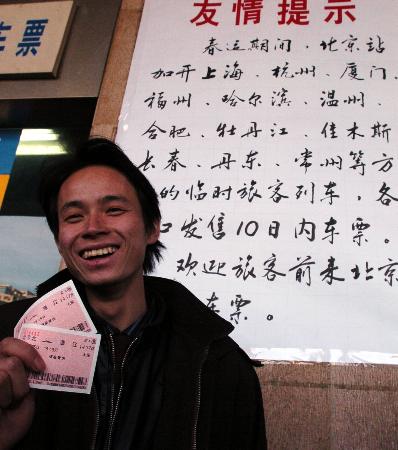 车票
友情提示
春运期间、北京站
加开上海、杭州、厦门、
福州、哈尔滨、温州、
合肥、牡丹江、佳木斯
长春、丹东、常州等方
的临时旅客列车，各
口发售10日内车票。
欢迎旅客前来北京
车票。